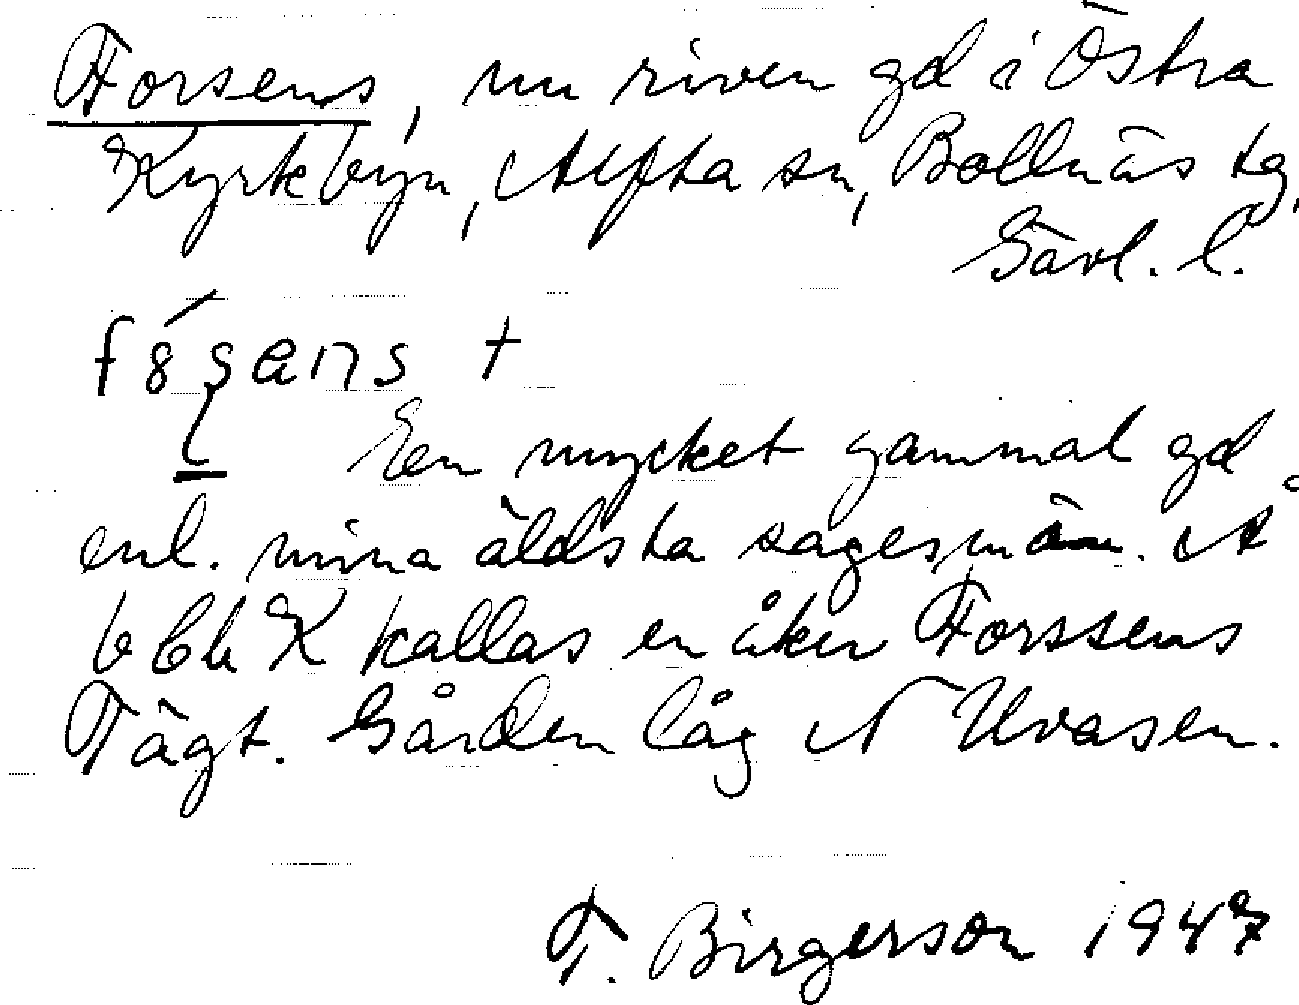 Forsens, nu riven gd i Östra
Kyrkbyn, Alfta sn, Bollnäs tg,
Gävl. l.
En mycket gammal gd
enl. mina äldsta sagesmän. Å
kallas en åker Forssens
Tägt. Gården låg N Uvasen.
T. Birgerson 1947